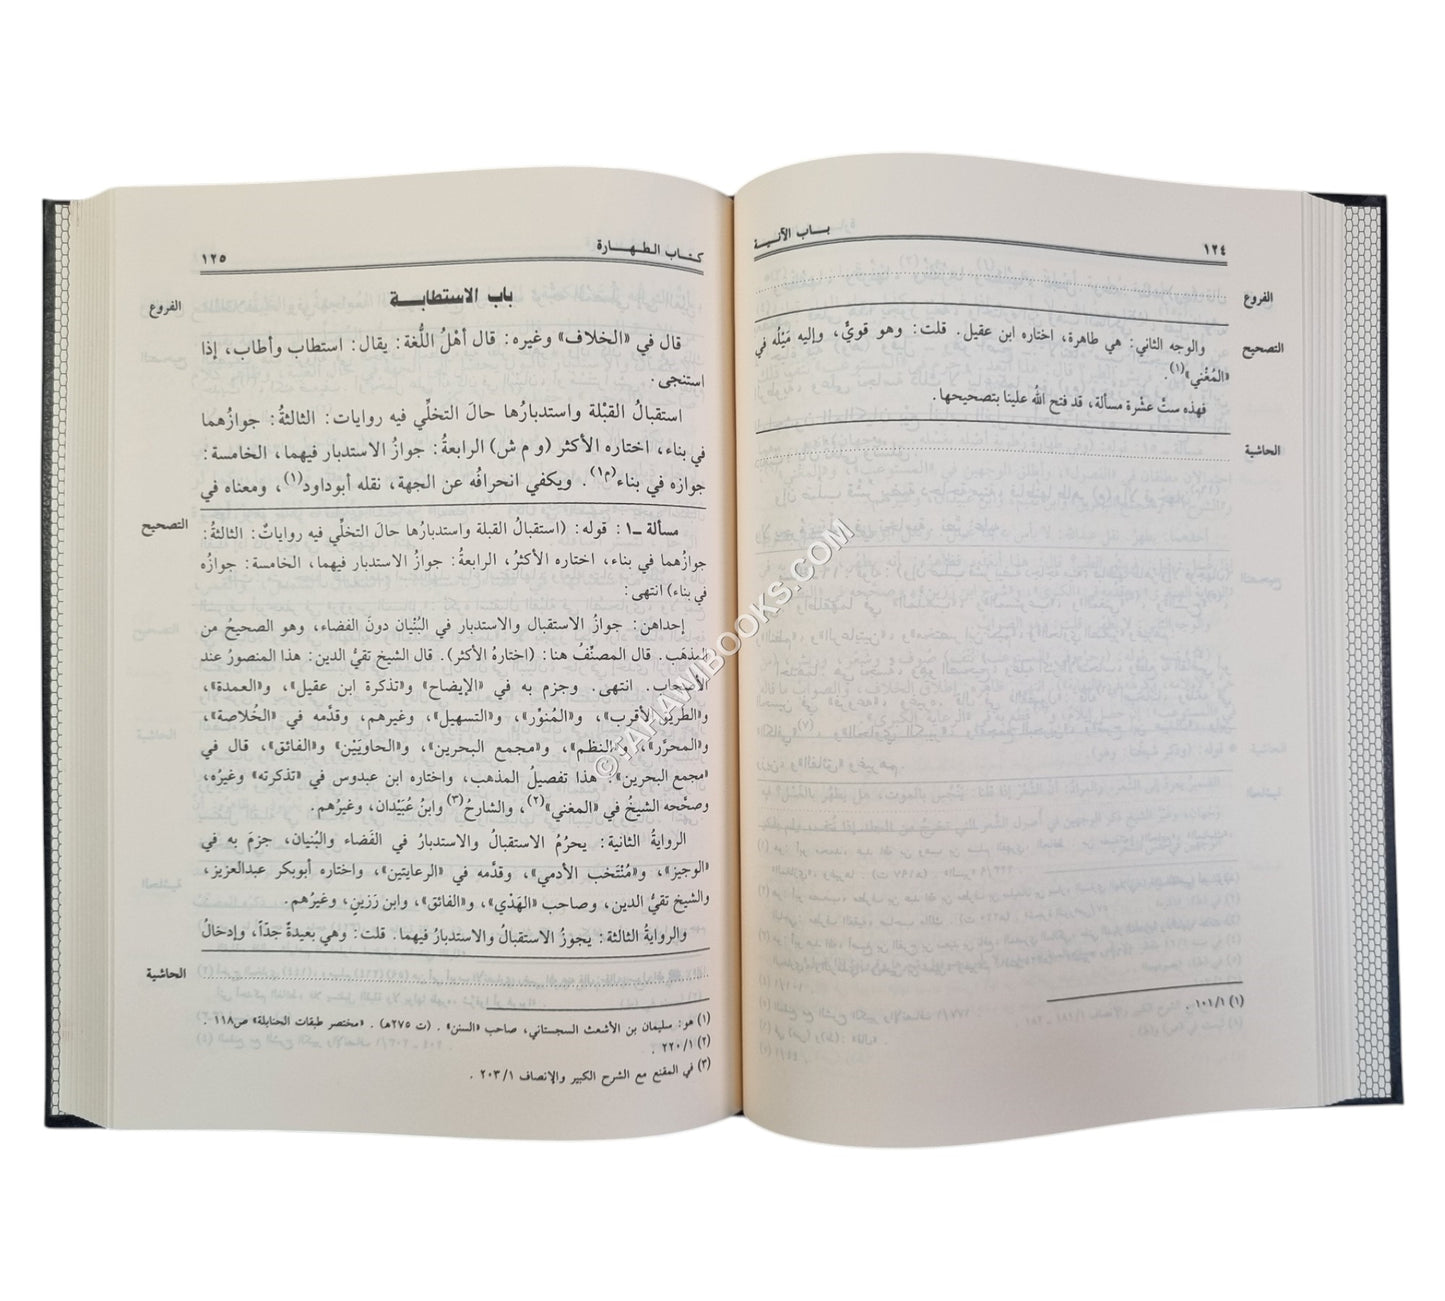 ١٢٤
بـاب الآنـيـة
الفروع
التصحيح
والوجه الثاني: هي طاهرة، اختاره ابن عقيل. قلت: وهو قويٌّ، وإليه مَيْلُه في
«المُغْني»(١).
فهذه ستَّ عشْرة مسألة، قدْ فتح اللهُ علينا بتصحيحها.
الحاشية
(١) ١٠١/١ .
كتاب الطـهـارة
١٢٥
باب الاستطابـة
الفروع
قال في «الخلاف» وغيره: قال أهْلُ اللُّغة: يقال: استطاب وأطاب، إذا
استنجى.
استقبالُ القبْلة واستدبارُها حالَ التخلِّي فيه روايات: الثالثةُ: جوازُهما
في بناء، اختاره الأكثر (و م ش) الرابعةُ: جوازُ الاستدبار فيهما، الخامسة:
جوازه في بناء(م١). ويكفي انحرافُه عن الجهة، نقله أبوداود(١)، ومعناه في
التصحيح
مسألة ــ١ : قوله: (استقبالُ القبلة واستدبارُها حالَ التخلِّي فيه رواياتٌ: الثالثةُ:
جوازُهما في بناء، اختاره الأكثرُ، الرابعةُ: جوازُ الاستدبار فيهما، الخامسة: جوازُه
في بناء) انتهى:
إحداهن: جوازُ الاستقبال والاستدبار في البُنْيان دونَ الفضاء، وهو الصحيحُ من
المذهَب. قال المصنِّفُ هنا: (اختارهُ الأكثر). قال الشيخ تقيُّ الدين: هذا المنصورُ عند
الأصحاب. انتهى. وجزم به في «الإيضاح» و«تذكرة ابن عقيل»، و«العمدة»،
و«الطريق الأقرب»، و«المُنوِّر»، و«التسهيل»، وغيرهم، وقدَّمه في «الخُلاصة»،
و«المحرَّر»، و«النظم»، و«مجمع البحرين»، و«الحاويَيْن» و«الفائق»، قال في
«مجمع البحرين»: هذا تفصيلُ المذهب، واختاره ابن عبدوس في «تذكرته» وغيرُه،
وصحَّحه الشيخُ في «المغني»(٢)، والشارحُ(٣) وابنُ عُبَيْدان، وغيرُهم.
الروايةُ الثانية: يحرُمُ الاستقبالُ والاستدبارُ في الفَضاء والبُنيان، جزمَ به في
«الوجيز»، و«مُنْتَخب الأدمي»، وقدَّمه في «الرعايتين»، واختاره أبوبكر عبدالعزيز،
والشيخ تقيُّ الدين، وصاحب «الهَدْي»، و«الفائق»، وابن رَزَينٍ، وغيرُهم.
والروايةُ الثالثة: يجوزُ الاستقبالُ والاستدبارُ فيهما. قلت: وهي بعيدةٌ جدّاً، وإدخالُ
الحاشية
(١) هو: سليمان بن الأشعث السجستاني، صاحب «السنن». (ت ٢٧٥هـ). «مختصر طبقات الحنابلة» ص١١٨ .
(٢) ٢٢٠/١ .
(٣) في المقنع مع الشرح الكبير والإنصاف ٢٠٣/١ .
©TAHAWIBOOKS.COM